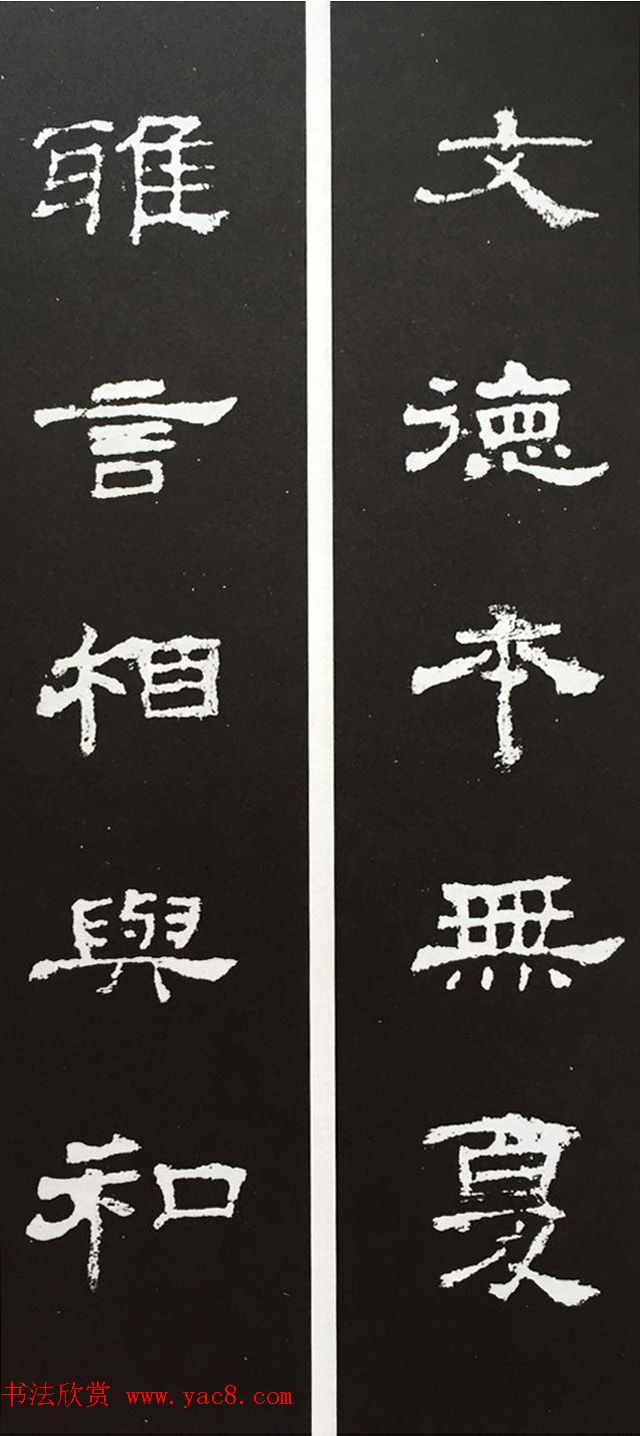 文德本無夏
雅言相與和
书法欣赏 www.yac8.com